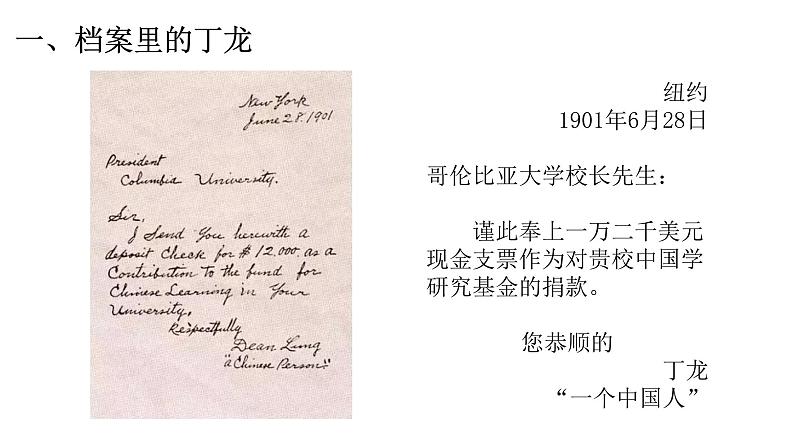 一、档案里的丁龙
New York
June 28. 1901
President
Columbia University.
Sir,
I Send You herewith a
deposit Check for $12,000. as a
Contribution to the fund for
Chinese Learning in Your
University.
Respectfully
Dean Lung
"a Chinese Person"
纽约
1901年6月28日
哥伦比亚大学校长先生：
谨此奉上一万二千美元
现金支票作为对贵校中国学
研究基金的捐款。
您恭顺的
丁龙
“一个中国人”